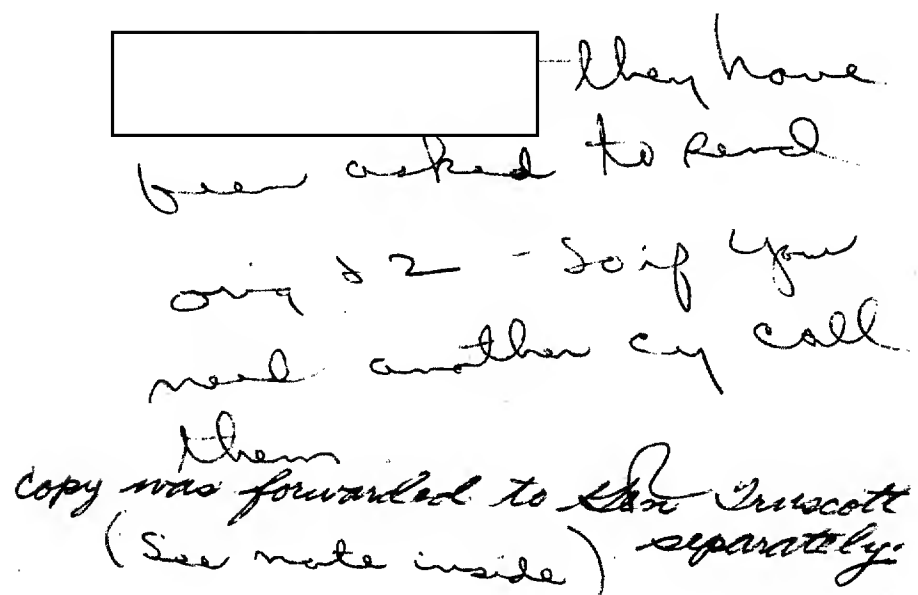 — they have
been asked to send
orig & 2 - so if you
need another cy call
them
copy was forwarded to Gen Truscott
separately.
(See note inside)